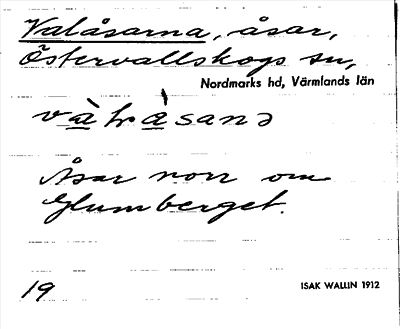 Valåsarna, åsar,
Östervallskogs sn,
Nordmarks hd, Värmlands län
Åsar norr om
Glumberget.
19
ISAK WALLIN 1912